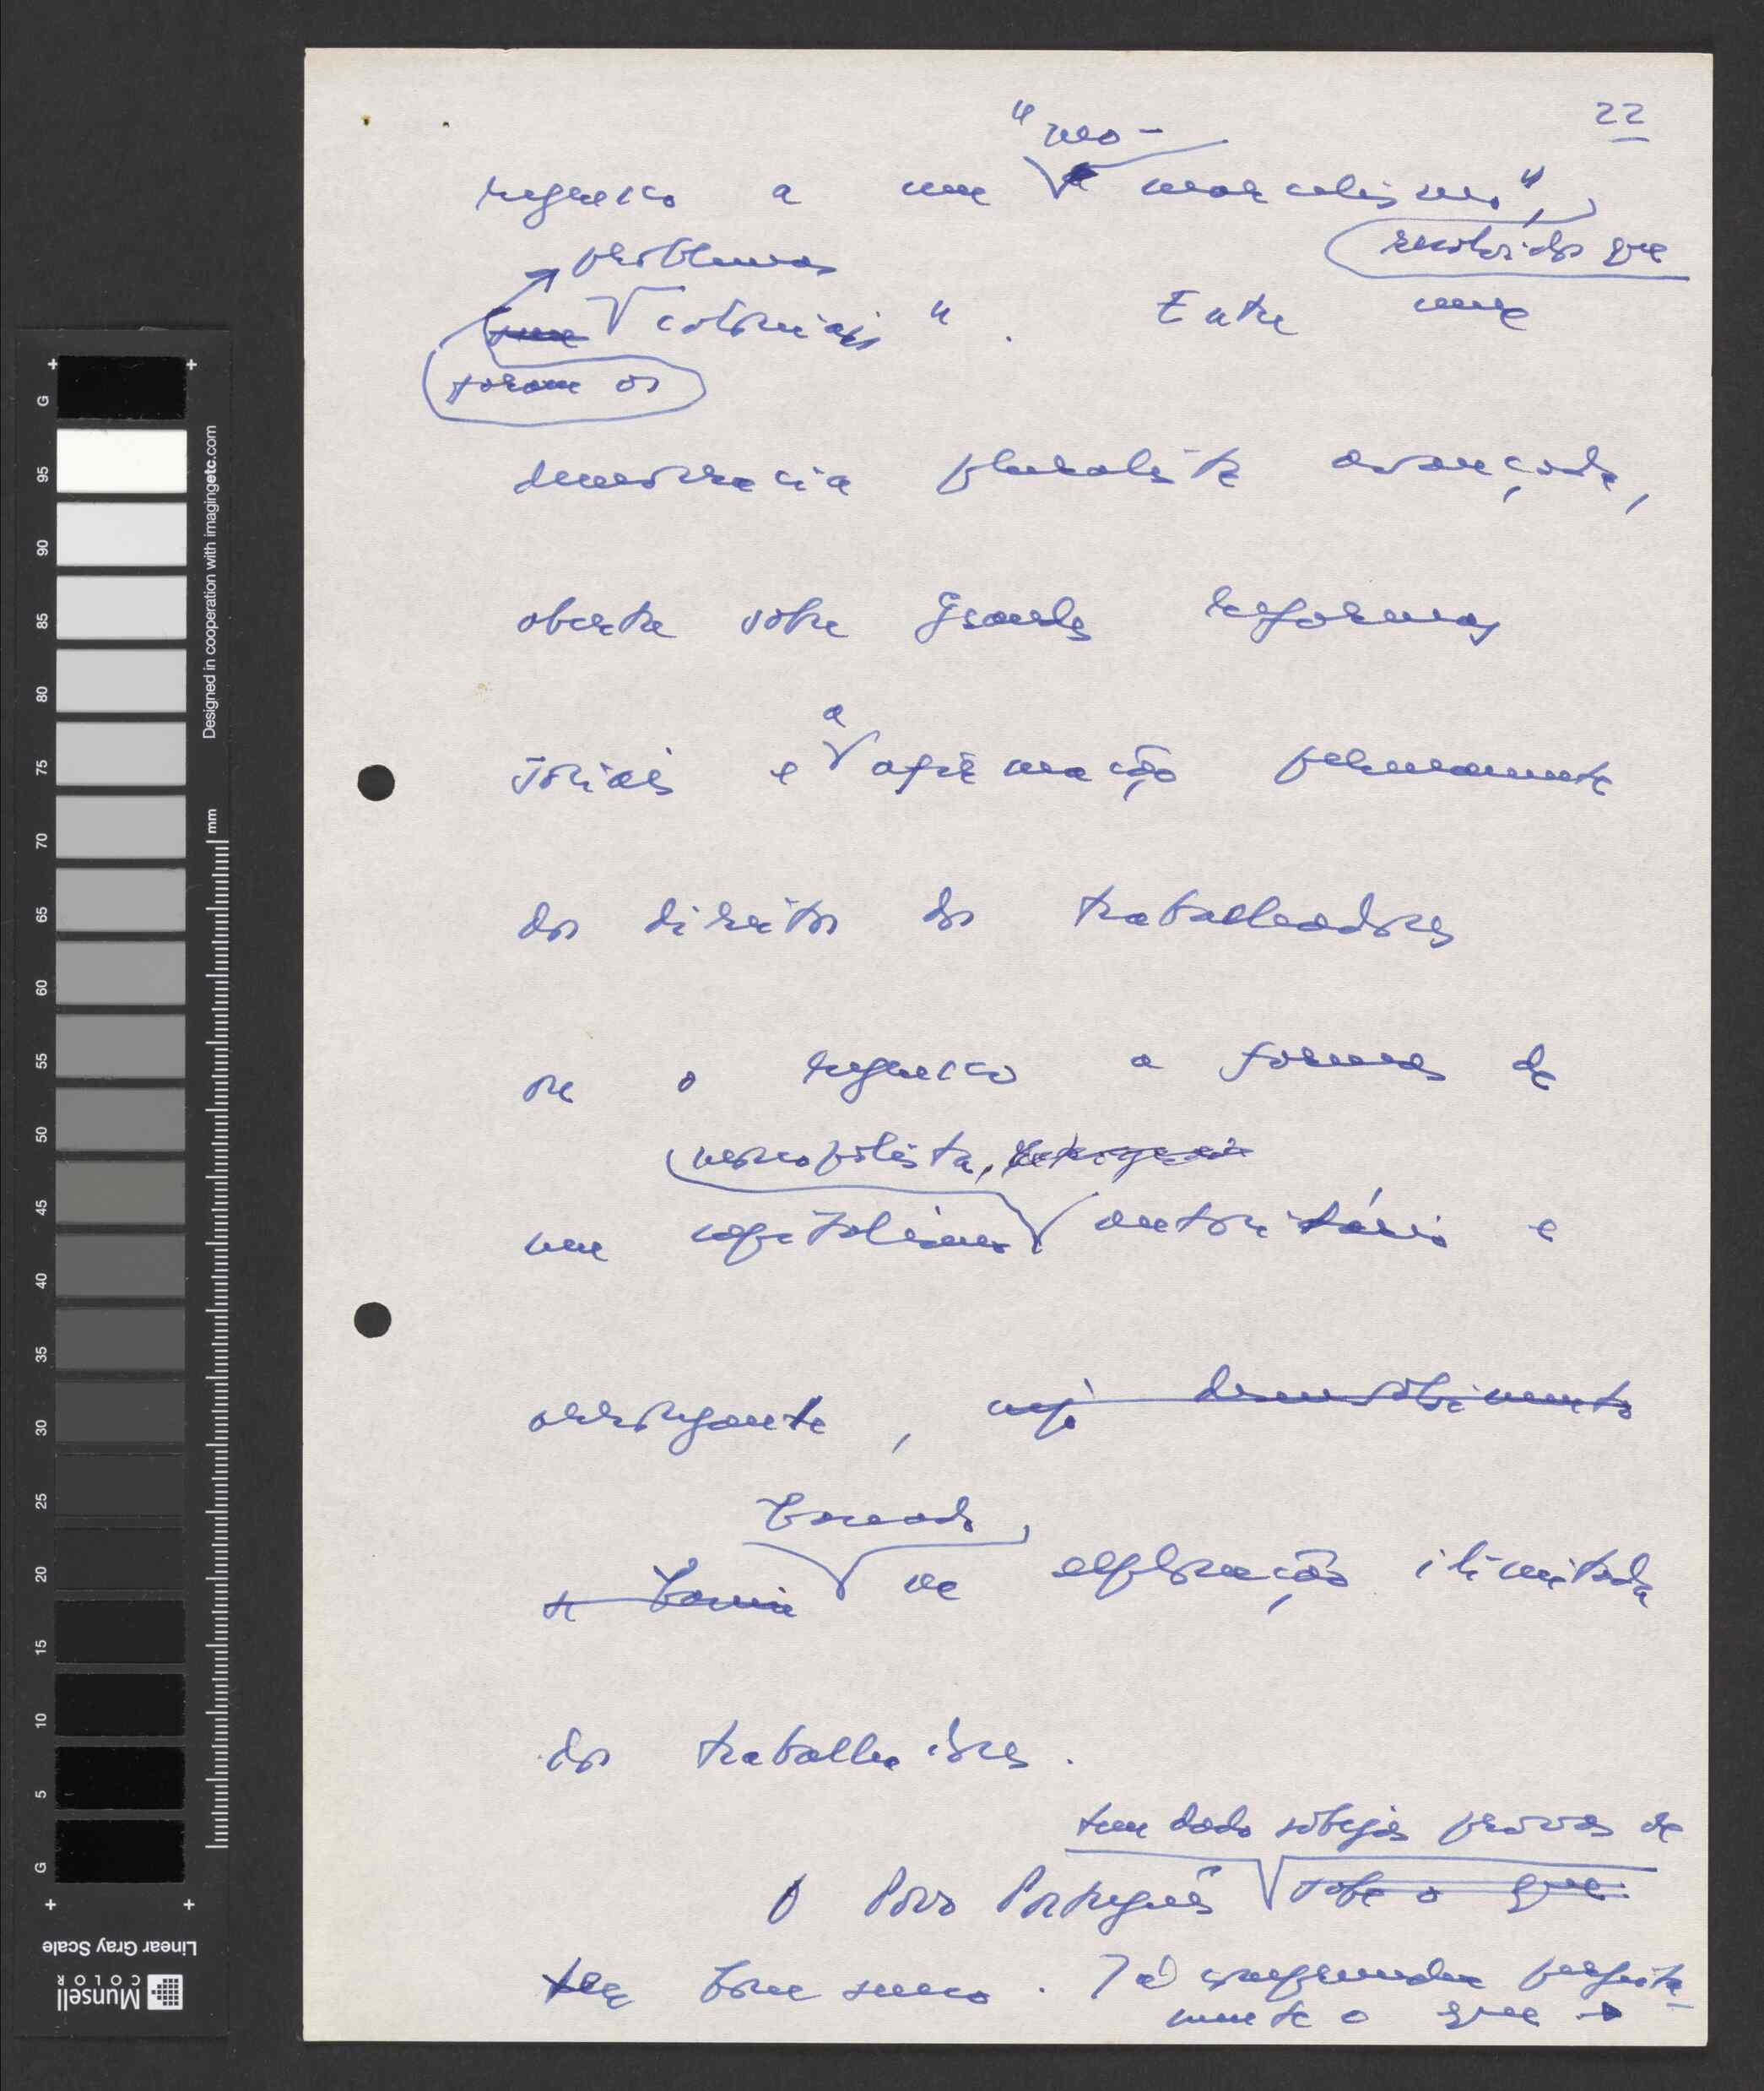 22
"neo-
regresso a um marcelismo",
resolvidos que
problemas
coloniais". Entre uma
foram os
democracia pluralista avançada,
aberta sobre grandes reformas
a
sociais e afirmação plenamente
dos direitos dos trabalhadores
ou o regresso a formas de
monopolista,
um capitalismo autoritário e
arrogante, cujo desenvolvimento
baseado
se baseia na exploração ilimitada
dos trabalhadores.
tem dado sobejas provas de
O Povo Português sabe o que
bom senso. Já compreendeu perfeita-
mente o que
G
95
90
85
80
75
70
65
60
55
50
45
40
35
30
25
20
15
10
5
G
mm
Designed in cooperation with imagingetc.com
Linear Gray Scale
Munsell
COLOR